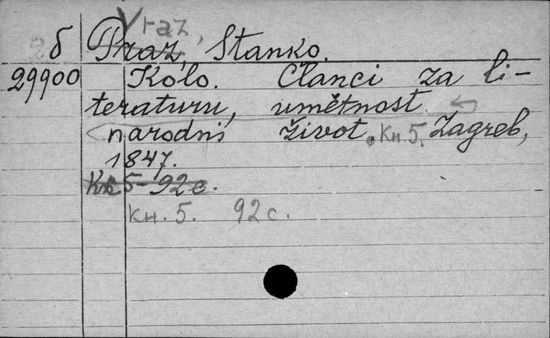 Vraz,
2б Praz, Stanko.
29900 Kolo. Članci za li-
teraturu, umětnost
narodni život, Кн. 5. Zagreb,
1847.
Кн 5 - 92 с.
Кн. 5. 92 с.